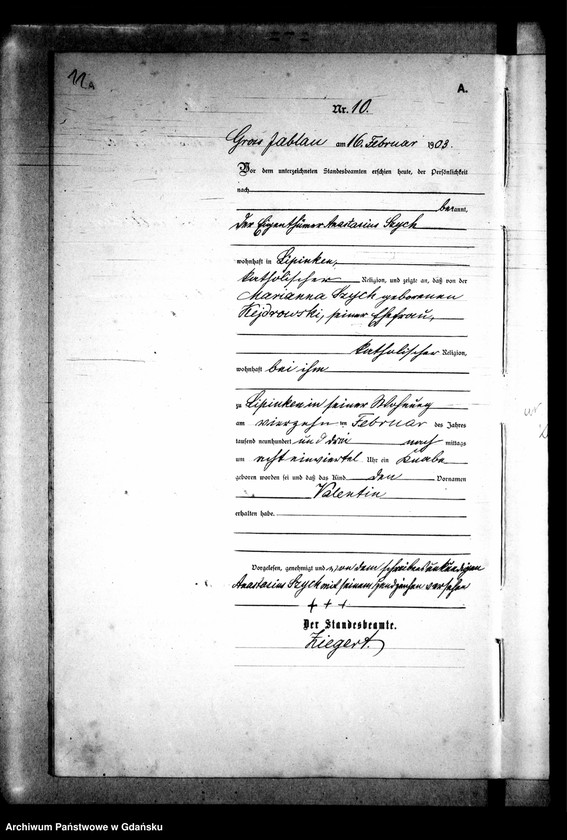 11A
A.
Nr. 10.
Gross Jablau am 16. Februar 1903.
Vor dem unterzeichneten Standesbeamten erschien heute, der Persönlichkeit
nach
bekannt,
der Eigenthümer Anastasius Szych
wohnhaft in Lipinken,
katholischer Religion, und zeigte an, daß von der
Marianna Szych geborenen
Kejdrowski, seiner Ehefrau,
katholischer Religion,
wohnhaft bei ihm
zu Lipinken in seiner Wohnung
am vierzehnten Februar des Jahres
tausend neunhundert und drei nachmittags
um acht einviertel Uhr ein Knabe
geboren worden sei und daß das Kind den Vornamen
Valentin
erhalten habe.
Vorgelesen, genehmigt und von dem schreibensunkundigen
Anastasius Szych mit seinem Handzeichen versehen
+ + +
Der Standesbeamte.
Ziegert.
Archiwum Państwowe w Gdańsku